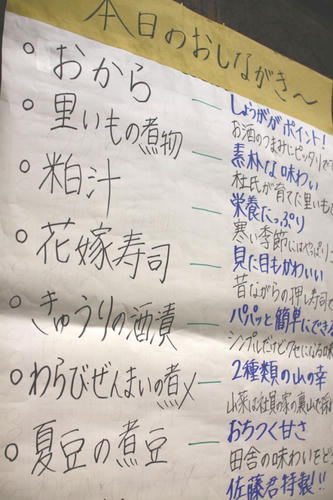 本日のおしながき〜
○ おから
しょうががポイント!
お酒のつまみにピッタリで
○ 里いもの煮物
素朴な味わい
杜氏が育てた里いも
○ 粕汁
栄養たっぷり
寒い季節にはやっぱり
○ 花嫁寿司
見た目もかわいい
昔ながらの押し寿司
○ きゅうりの酒漬
パパッと簡単にできる
シンプルだけどクセになる味
○ わらびぜんまいの煮〆
2種類の山の幸
山菜は社員の家の裏山で採
○ 夏豆の煮豆
おちつく甘さ
田舎の味わいをど
佐藤君特製!!